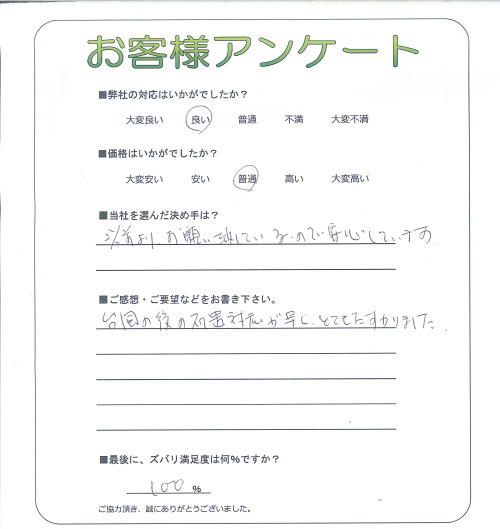 お客様アンケート
■弊社の対応はいかがでしたか？
大変良い 良い 普通 不満 大変不満
■価格はいかがでしたか？
大変安い 安い 普通 高い 大変高い
■当社を選んだ決め手は？
以前より、お願い致しているので安心しています
■ご感想・ご要望などをお書き下さい。
台風の後の処置対応が早く、とてもたすかりました。
■最後に、ズバリ満足度は何%ですか？
100 %
ご協力頂き、誠にありがとうございました。